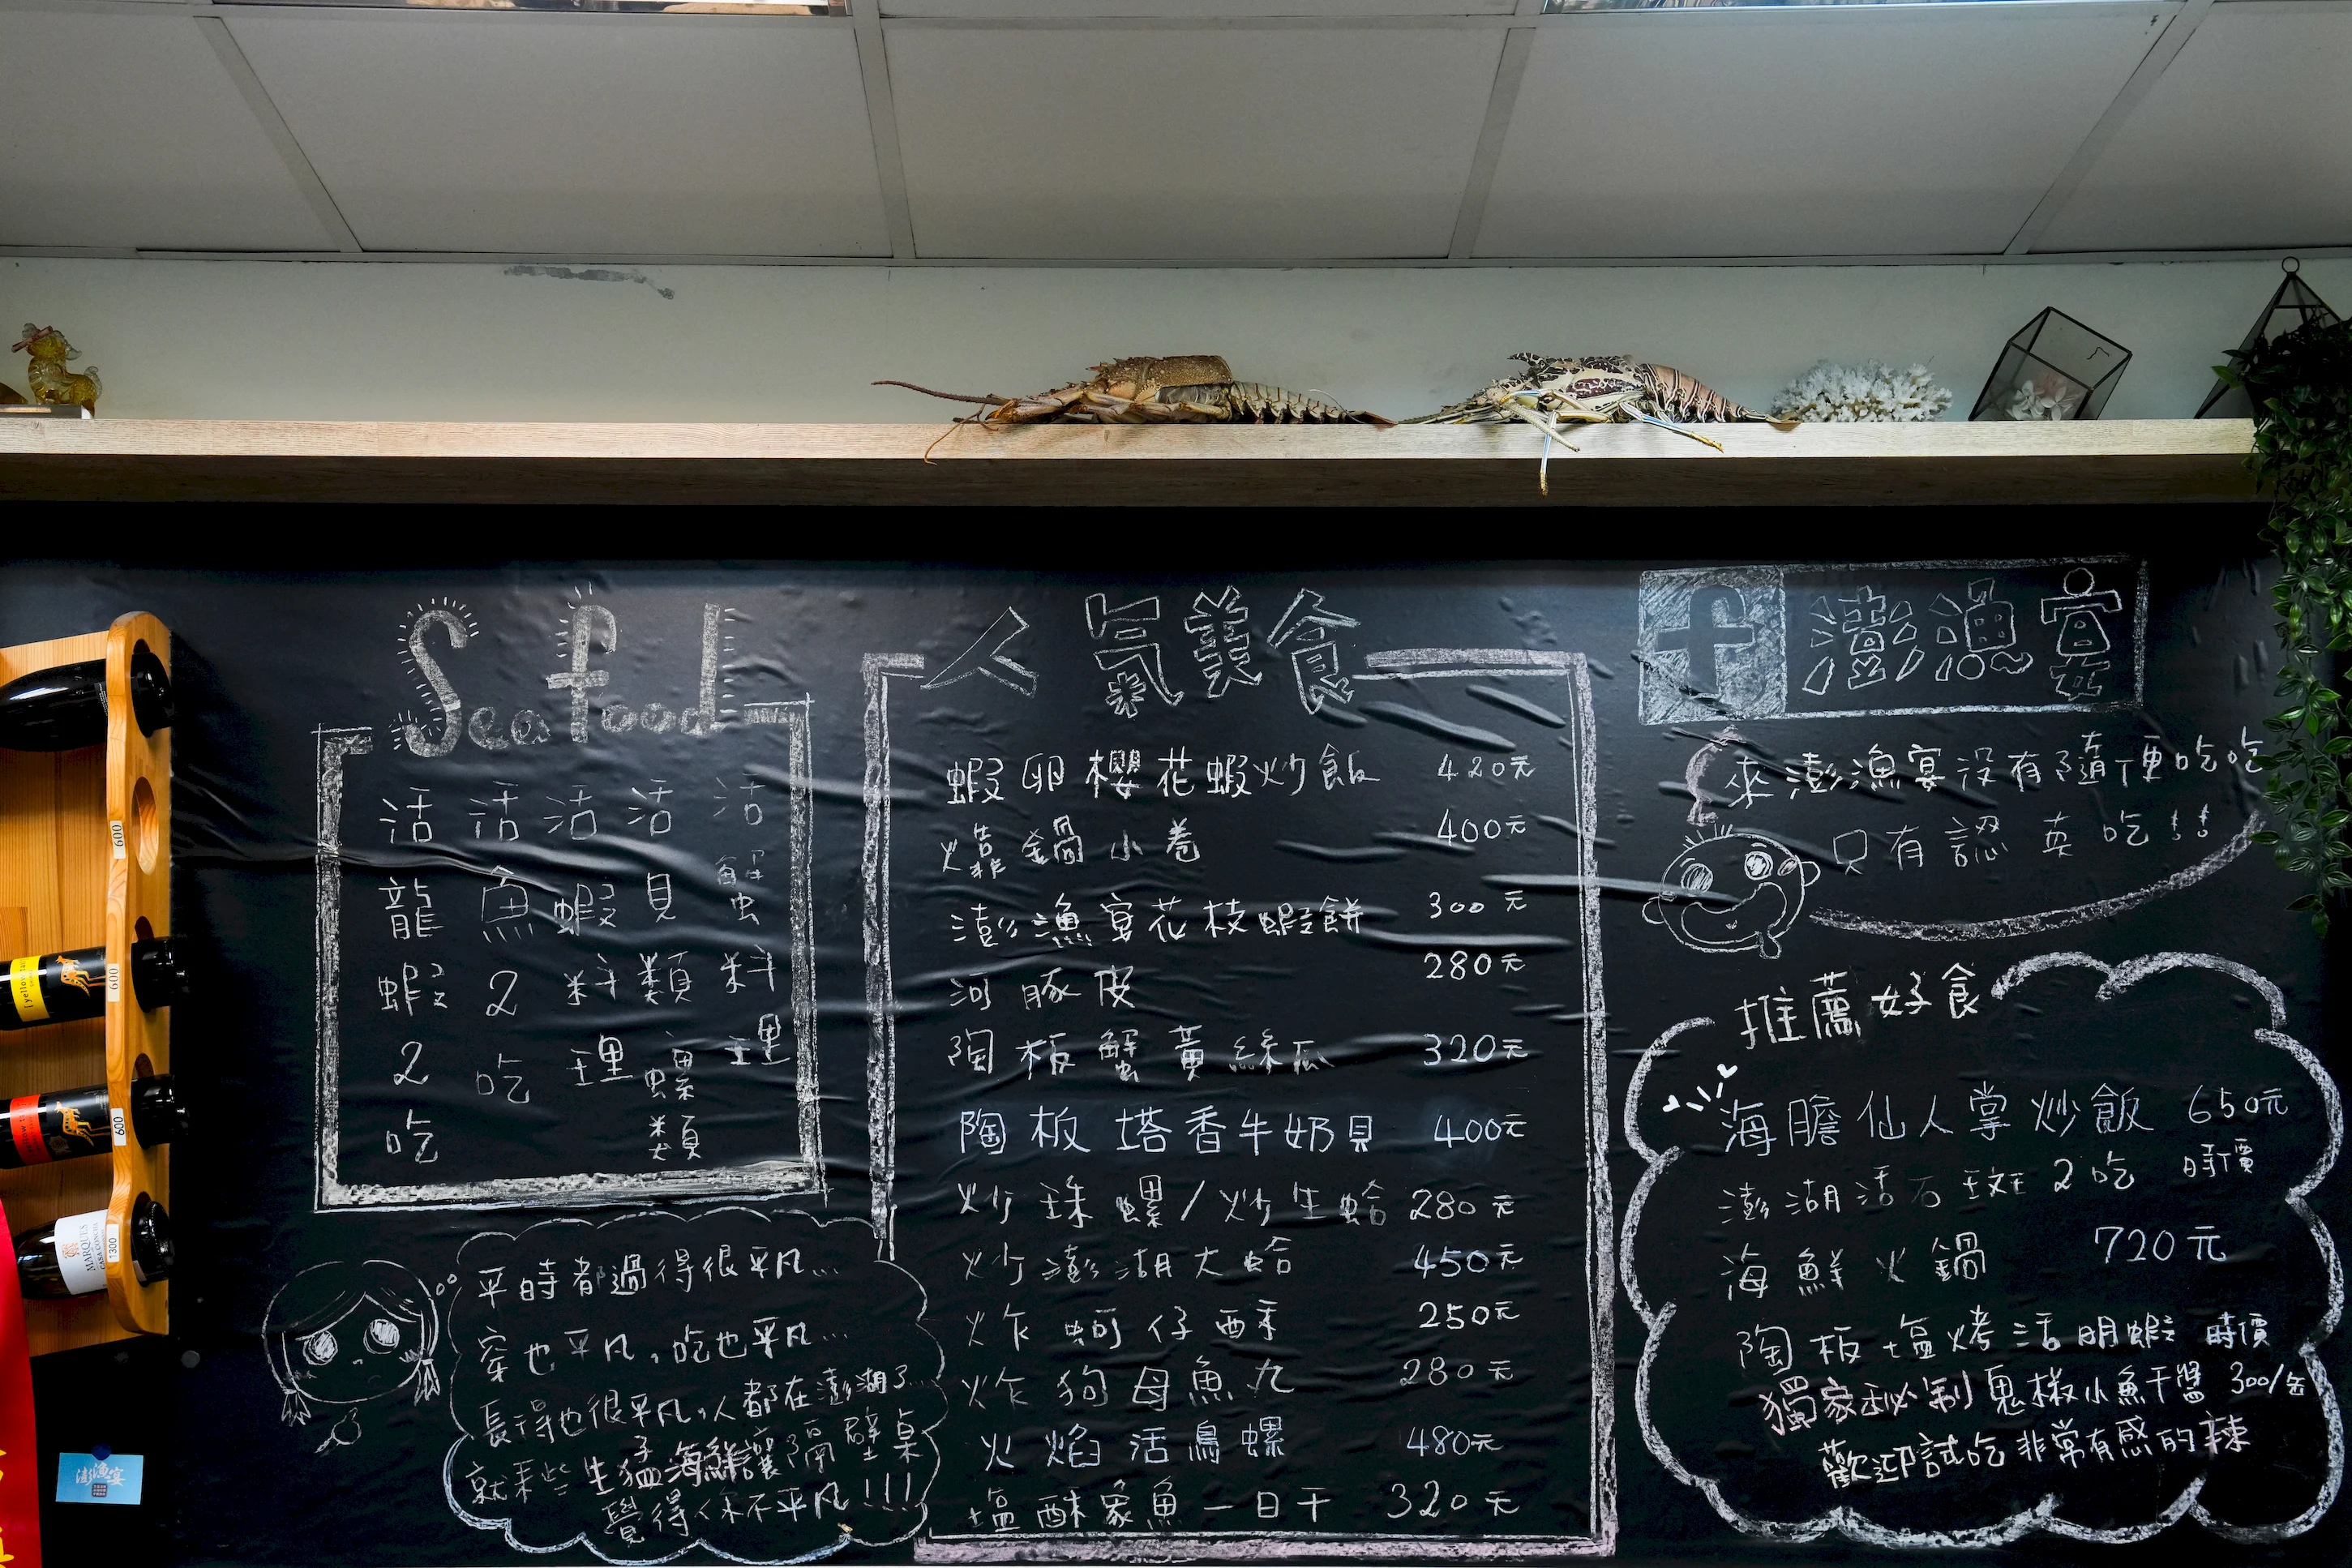 Seafood
活龍蝦2吃
活魚2吃
活蝦料理
活貝類螺類
活蟹料理
平時都過得很平凡...
穿也平凡,吃也平凡...
長得也很平凡,人都在澎湖了...
就來些生猛海鮮讓隔壁桌
覺得你不平凡!!!
人氣美食
蝦卵櫻花蝦炒飯 420元
鍋小卷 400元
澎漁宴花枝蝦餅 300元
河豚皮 280元
陶板蟹黃絲瓜 320元
陶板塔香牛奶貝 400元
炒珠螺/炒生蛤 280元
炒澎湖大蛤 450元
炸蚵仔酥 250元
炸狗母魚丸 280元
火焰活鳥螺 480元
塩酥家魚一日干 320元
f 澎漁宴
來澎漁宴没有隨便吃吃
只有認真吃!!
推薦好食
海膽仙人掌炒飯 650元
澎湖活石斑2吃 時價
海鮮火鍋 720元
陶板塩烤活明蝦 時價
獨家秘制鬼椒小魚干醬 300/缶
歡迎試吃非常有感的辣
600
600
600
1300
[yellow tail]
MARQUES
澎漁宴